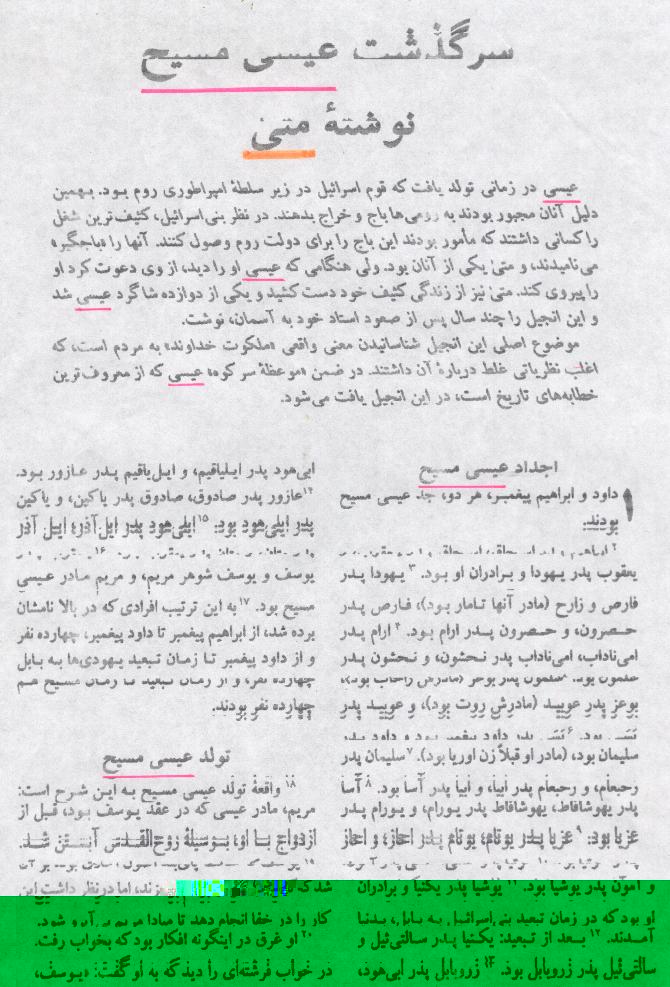 سرگذشت عیسی مسیح
نوشتهٔ متیٰ
عیسی در زمانی تولد یافت که قوم اسرائیل در زیر سلطهٔ امپراطوری روم بود. بهمین
دلیل آنان مجبور بودند به رومی‌ها باج و خراج بدهند. در نظر بنی‌اسرائیل، کثیف‌ترین شغل
را کسانی داشتند که مأمور بودند این باج را برای دولت روم وصول کنند. آنها را «باجگیر»
می‌نامیدند، و متیٰ یکی از آنان بود. ولی هنگامی که عیسی او را دید، از وی دعوت کرد او
را پیروی کند. متیٰ نیز از زندگی کثیف خود دست کشید و یکی از دوازده شاگرد عیسی شد
و این انجیل را چند سال پس از صعود استاد خود به آسمان، نوشت.
موضوع اصلی این انجیل شناسانیدن معنی واقعی «ملکوت خداوند» به مردم است، که
اغلب نظریاتی غلط دربارهٔ آن داشتند. در ضمن «موعظهٔ سر کوه» عیسی که از معروف‌ترین
خطابه‌های تاریخ است، در این انجیل یافت می‌شود.
اجداد عیسی مسیح
۱ داود و ابراهیم پیغمبر، هر دو، جد عیسی مسیح
بودند.
یعقوب پدر یهودا و برادران او بود. ۳ یهودا پدر
فارص و زارح (مادر آنها تامار بود)، فارص پدر
حصرون، و حصرون پدر ارام بود. ۴ ارام پدر
امی‌ناداب، امی‌ناداب پدر نحشون، و نحشون پدر
سلمون بود. ۵ سلمون پدر بوعز (مادرش راحاب بود)،
بوعز پدر عوبید (مادرش روت بود)، و عوبید پدر
یَسّی بود. ۶ یَسّی پدر داود پیغمبر بود و داود پدر
سلیمان بود، (مادر او قبلاً زن اوریا بود). ۷ سلیمان پدر
رحبعام، و رحبعام پدر ابیا، و ابیا پدر آسا بود. ۸ آسا
پدر یهوشافاط، یهوشافاط پدر یورام، و یورام پدر
عزیا بود. ۹ عزیا پدر یوتام، یوتام پدر احاز، و احاز
و آمون پدر یوشیا بود. ۱۱ یوشیا پدر یکنیا و برادران
او بود که در زمان تبعید بنی‌اسرائیل به بابل، بدنیا
آمدند. ۱۲ بعد از تبعید: یکنیا پدر سالتی‌ئیل و
سالتی‌ئیل پدر زروبابل بود. ۱۳ زروبابل پدر ابی‌هود،
ابی‌هود پدر ایلیاقیم، و ایل‌یاقیم پدر عازور بود.
۱۴ عازور پدر صادوق، صادوق پدر یاکین، و یاکین
پدر ایلی‌هود بود. ۱۵ ایلی‌هود پدر ایل‌آذر، ایل آذر
یوسف و یوسف شوهر مریم، و مریم مادر عیسی
مسیح بود. ۱۷ به این ترتیب افرادی که در بالا نامشان
برده شد، از ابراهیم پیغمبر تا داود پیغمبر، چهارده نفر
و از داود پیغمبر تا زمان تبعید یهودی‌ها به بابل
چهارده نفر، و از زمان تبعید تا زمان مسیح هم
چهارده نفر بودند.
تولد عیسی مسیح
۱۸ واقعهٔ تولد عیسی مسیح به این شرح است:
مریم، مادر عیسی که در عقد یوسف بود، قبل از
ازدواج با او، بوسیلهٔ روح‌القدس آبستن شد.
بزند، اما درنظر داشت این
کار را در خفا انجام دهد تا مبادا مریم بی‌آبرو شود.
۲۰ او غرق در اینگونه افکار بود که بخواب رفت.
در خواب فرشته‌ای را دید که به او گفت: «یوسف،